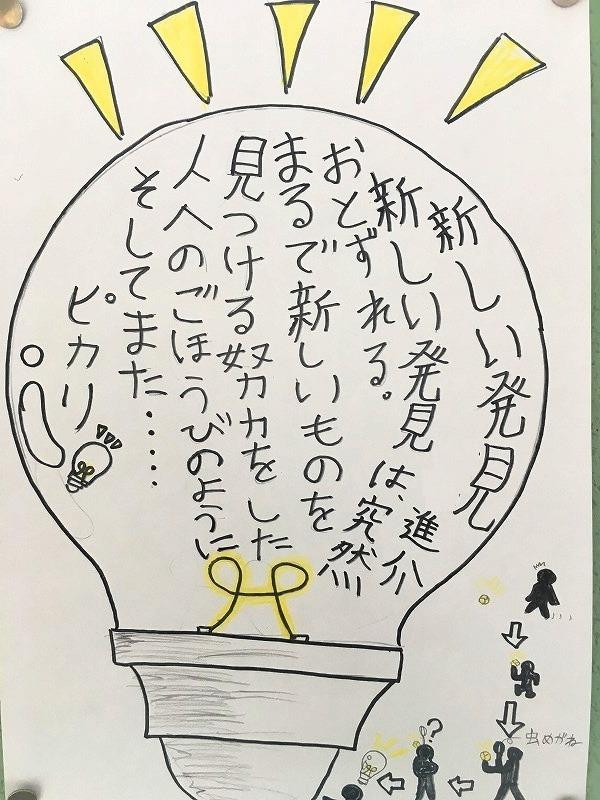 新しい発見
進介
新しい発見は、究然
おとずれる。
まるで新しいものを
見つける努力をした
人へのごほうびのように
そしてまた・・・・・
ピカリ
虫めがね
?